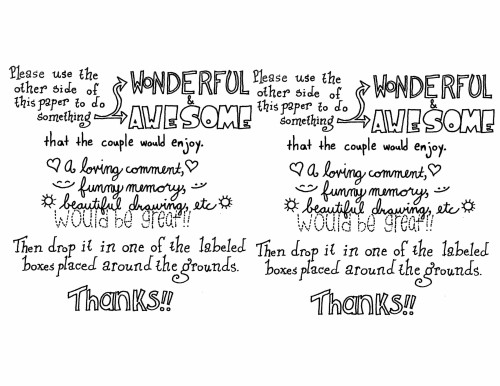 Please use the
other side of
this paper to do
something
WONDERFUL
&
AWESOME
that the couple would enjoy.
A loving comment,
funny memory,
beautiful drawing, etc
would be great!!
Then drop it in one of the labeled
boxes placed around the grounds.
Thanks!!
Please use the
other side of
this paper to do
something
WONDERFUL
&
AWESOME
that the couple would enjoy.
A loving comment,
funny memory,
beautiful drawing, etc
would be great!!
Then drop it in one of the labeled
boxes placed around the grounds.
Thanks!!